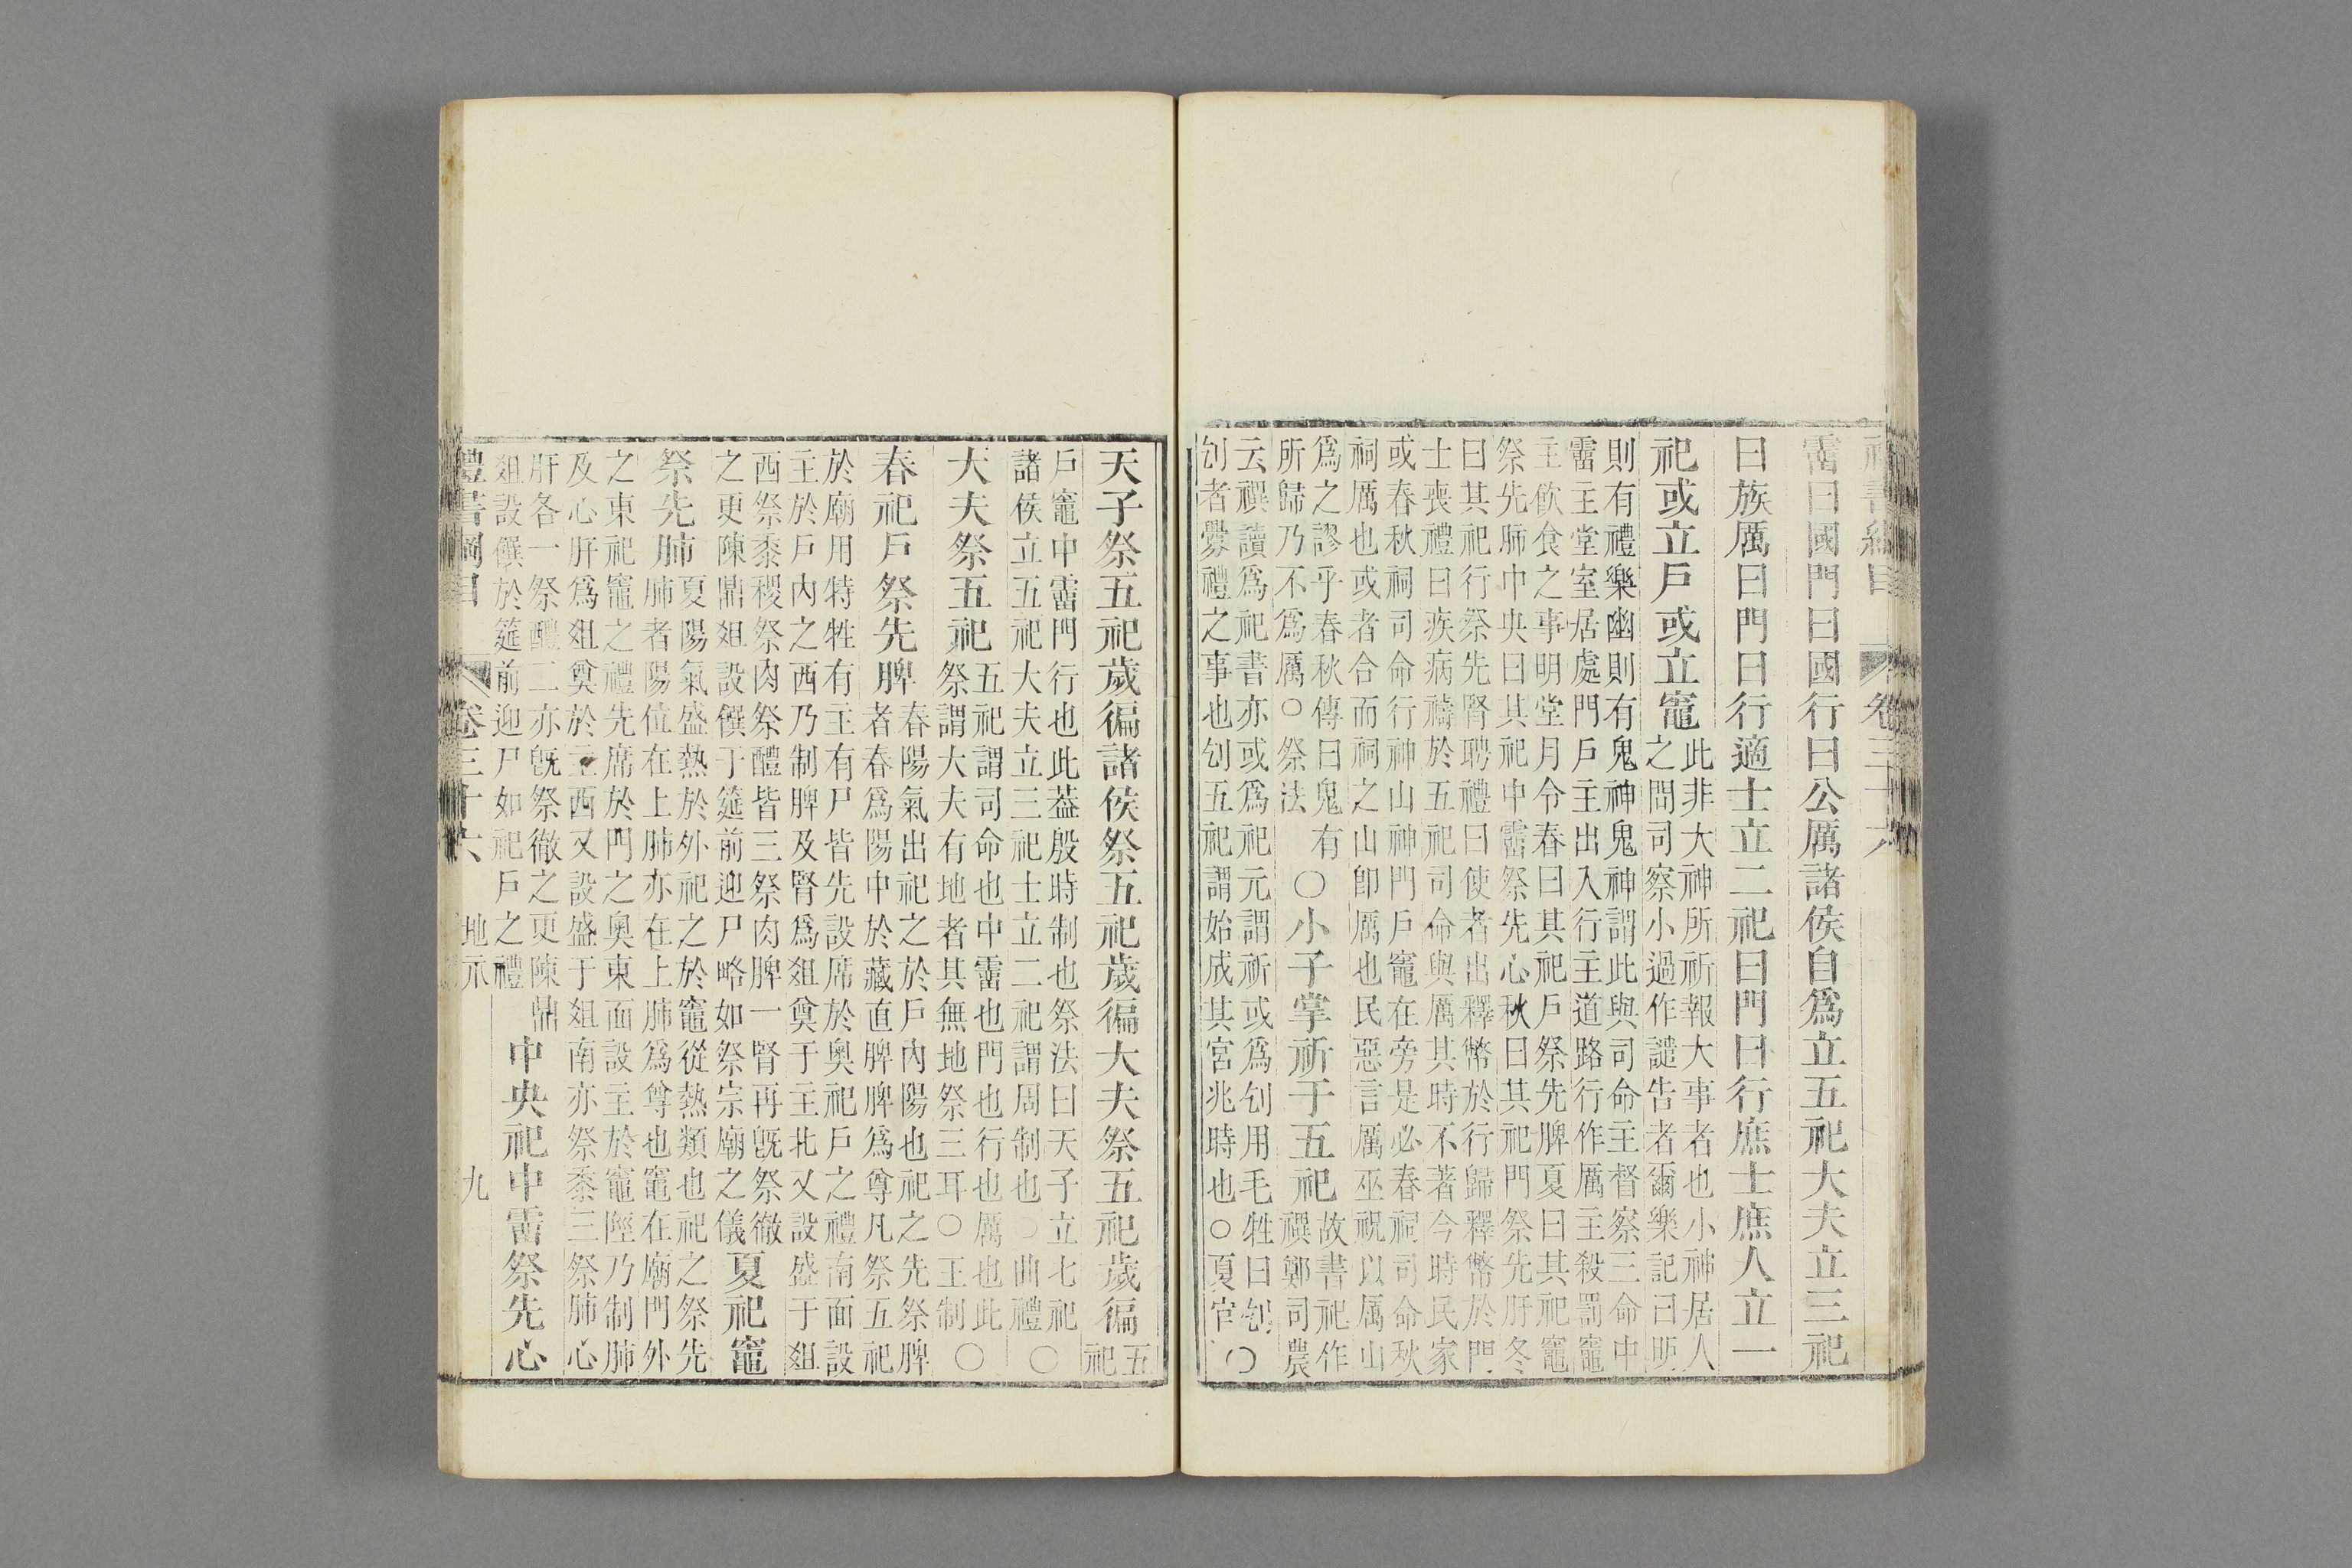 禮書綱目 卷三十六
霤曰國門曰國行曰公厲諸侯自爲立五祀大夫立三祀
曰族厲曰門曰行適士立二祀曰門曰行庶士庶人立一
祀或立戶或立竈
此非大神所祈報大事者也小神居人
之間司察小過作譴告者爾樂記曰明
則有禮樂幽則有鬼神鬼神謂此與司命主督察三命中
霤主堂室居處門戶主出入行主道路行作厲主殺罰竈
主飲食之事明堂月令春曰其祀戶祭先脾夏曰其祀竈
祭先肺中央曰其祀中霤祭先心秋曰其祀門祭先肝冬
曰其祀行祭先腎聘禮曰使者出釋幣於行歸釋幣於門
士喪禮曰疾病禱於五祀司命與厲其時不著今時民家
或春秋祠司命行神山神門戶竈在旁是必春祠司命秋
祠厲也或者合而祠之山卽厲也民惡言厲巫祝以厲山
爲之謬乎春秋傳曰鬼有
所歸乃不爲厲○祭法
○小子掌祈于五祀
故書祀作
禩鄭司農
云禩讀爲祀書亦或爲祀元謂祈或爲刉用毛牲曰刉
刉者釁禮之事也刉五祀謂始成其宮兆時也○夏官○
天子祭五祀歲徧諸侯祭五祀歲徧大夫祭五祀歲徧
五
祀
戶竈中霤門行也此葢殷時制也祭法曰天子立七祀
諸侯立五祀大夫立三祀士立二祀謂周制也○曲禮○
大夫祭五祀
五祀謂司命也中霤也門也行也厲也此
祭謂大夫有地者其無地祭三耳○王制○
春祀戶祭先脾
春陽氣出祀之於戶內陽也祀之先祭脾
者春爲陽中於藏直脾脾爲尊凡祭五祀
於廟用特牲有主有尸皆先設席於奧祀戶之禮南面設
主於戶內之西乃制脾及腎爲俎奠于主北又設盛于俎
西祭黍稷祭肉祭醴皆三祭肉脾一腎再旣祭徹
之更陳鼎俎設饌于筵前迎尸略如祭宗廟之儀
夏祀竈
祭先肺
夏陽氣盛熱於外祀之於竈從熱類也祀之祭先
肺者陽位在上肺亦在上肺爲尊也竈在廟門外
之東祀竈之禮先席於門之奧東面設主於竈陘乃制肺
及心肝爲俎奠於主西又設盛于俎南亦祭黍三祭肺心
肝各一祭醴二亦旣祭徹之更陳鼎
俎設饌於筵前迎尸如祀戶之禮
中央祀中霤祭先心
禮書綱目 卷三十六 地示 九